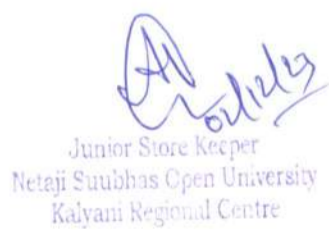 02/12/23
Junior Store Keeper
Netaji Suubhas Open University
Kalyani Regional Centre